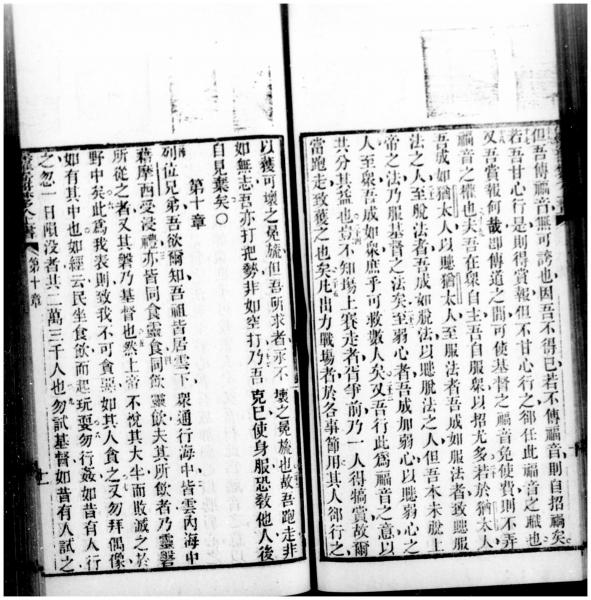 但吾傳福音無可誇也因吾不得已若不傳福音則自招禍矣
若吾甘心行是則得賞報但不甘心行之郤任此福音之職也
又吾賞報何哉卽傳道之間可使基督之福音免使費則不弄
福音之權也夫吾在衆自主吾自服衆以招尤多若於猶太人
吾成如猶太人以聽猶太人至服法者吾成如服法者致聽服
法之人至脫法者吾成如脫法以聽脫法之人但吾本未脫上
帝之法乃服基督之法矣至弱心者吾成加弱心以聽弱心之
人至衆吾成如衆庶乎可救數人矣又吾行此爲福音之意以
共分其益也豈不知場上賽走者皆爭前乃一人得犒賞故爾
當跑走致獲之也矣凡出力戰場者於各事節用其人郤行之
以獲可壞之冕旒但吾所求者永不壞之冕旒也故吾跑走非
如無志吾亦打把勢非如空打乃吾克己使身服恐教他人後
自見棄矣〇
第十章
列位兄弟吾欲爾知吾祖皆居雲下衆通行海中皆雲內海中
藉摩西受浸禮亦皆同食靈食同飲靈飲夫其所飲者乃靈磐
所從之者又其磐乃基督也然上帝不悅其大半而敗滅之於
野中矣此爲我表則致我不可貪惡如其人貪之又勿拜偶像
如有其中也如經云民坐食飲而起玩耍勿行姦如昔有人行
之忽一日隕沒者其二萬三千人也勿試基督如昔有人試之
第十章